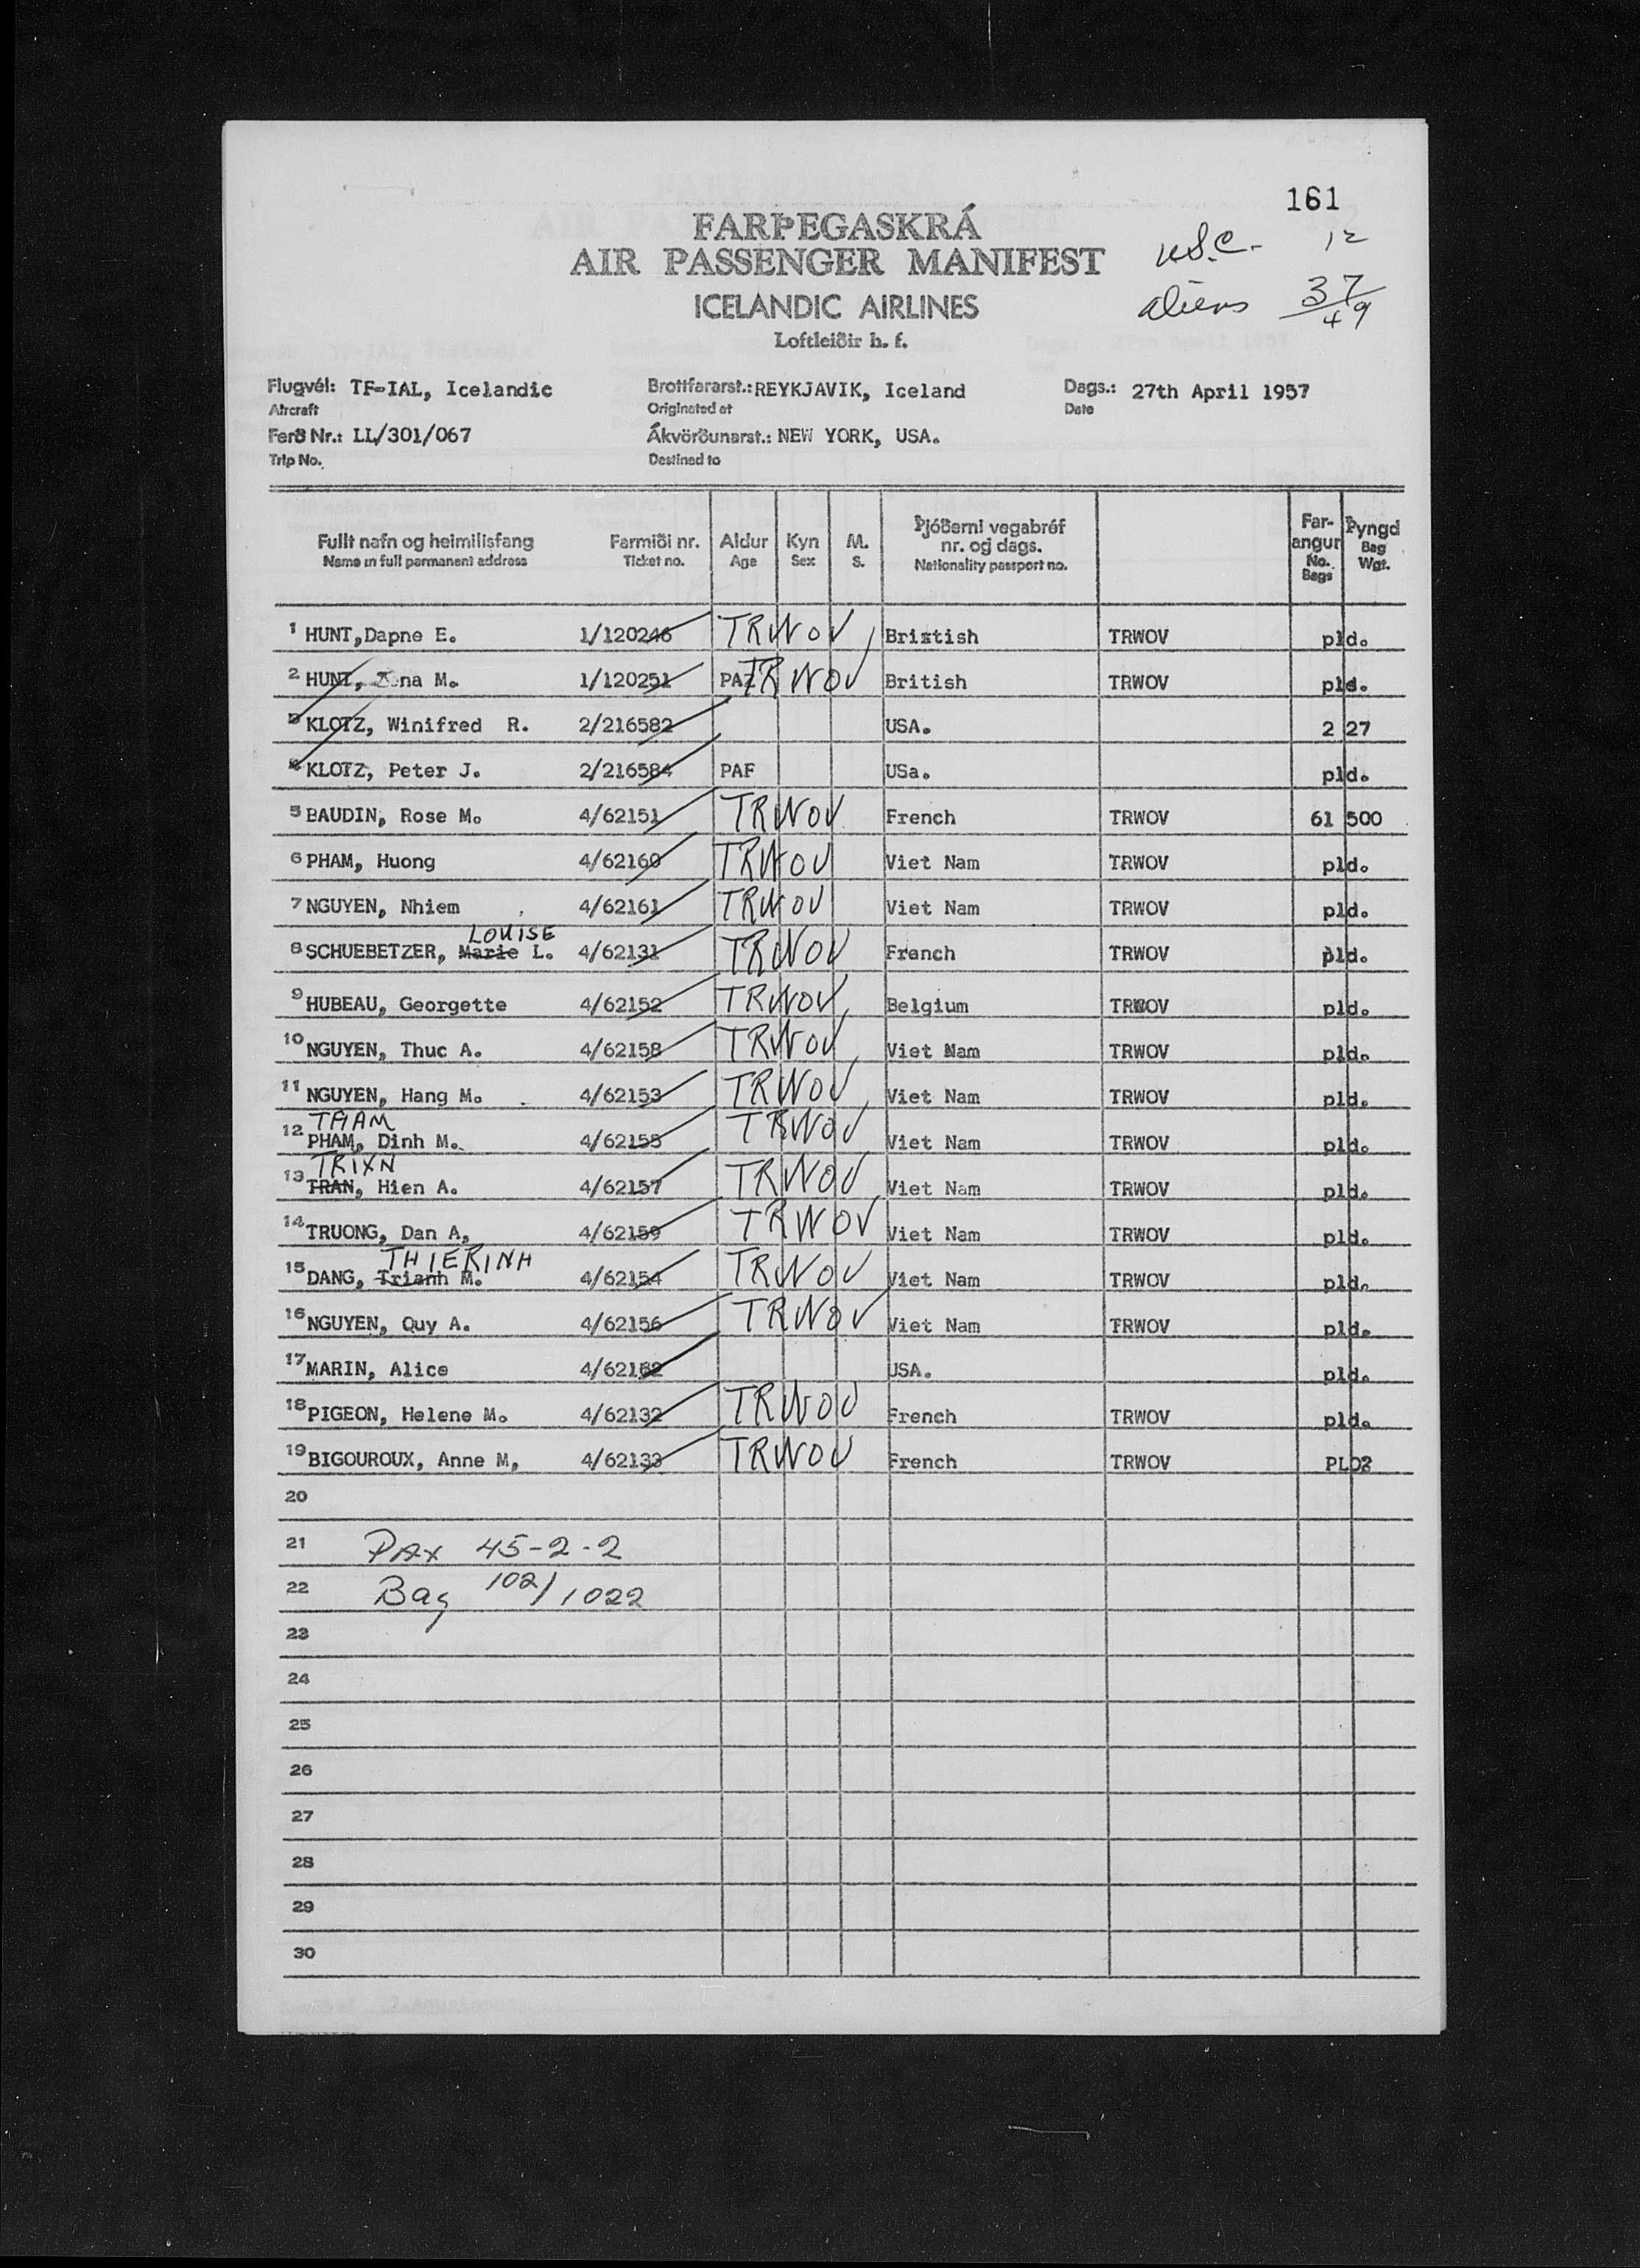 161
FARÞEGASKRÁ
AIR PASSENGER MANIFEST
ICELANDIC AIRLINES
Loftleiðir h. f.
U.S.C. - 12
aliens 37
49
Flugvél: TF-IAL, Icelandic Brottfararst.: REYKJAVIK, Iceland Dags.: 27th April 1957
Aircraft Originated at Date
Ferð Nr.: LL/301/067 Ákvörðunarst.: NEW YORK, USA.
Trip No. Destined to
Fullt nafn og heimilisfang Farmiði nr. Aldur Kyn M. Þjóðerni vegabréf nr. og dags. Far-angur Þyngd
Name in full permanent address Ticket no. Age Sex S. Nationality passport no. No. Bags Bag Wgt.
1 HUNT,Dapne E. 1/120246 TRWOV Bristish TRWOV pld.
2 HUNT, na M. 1/120251 PAZ TRWOV British TRWOV pld.
3 KLOTZ, Winifred R. 2/216582 USA. 2 27
4 KLOTZ, Peter J. 2/216584 PAF USa. pld.
5 BAUDIN, Rose M. 4/62151 TRWOV French TRWOV 61 500
6 PHAM, Huong 4/62160 TRWOV Viet Nam TRWOV pld.
7 NGUYEN, Nhiem 4/62161 TRWOV Viet Nam TRWOV pld.
LOUISE
8 SCHUEBETZER, Marie L. 4/62131 TRWOV French TRWOV pld.
9 HUBEAU, Georgette 4/62152 TRWOV Belgium TRWOV pld.
10 NGUYEN, Thuc A. 4/62158 TRWOV Viet Nam TRWOV pld.
11 NGUYEN, Hang M. 4/62153 TRWOV Viet Nam TRWOV pld.
THAM
12 PHAM, Dinh M. 4/62155 TRWOV Viet Nam TRWOV pld.
TRIXN
13 TRAN, Hien A. 4/62157 TRWOV Viet Nam TRWOV pld.
14 TRUONG, Dan A, 4/62159 TRWOV Viet Nam TRWOV pld.
THIERINH
15 DANG, Trianh M. 4/62154 TRWOV Viet Nam TRWOV pld.
16 NGUYEN, Quy A. 4/62156 TRWOV Viet Nam TRWOV pld.
17 MARIN, Alice 4/62162 USA. pld.
18 PIGEON, Helene M. 4/62132 TRWOV French TRWOV pld.
19 BIGOUROUX, Anne M, 4/62133 TRWOV French TRWOV PLD
20
21 PAX 45-2-2
22 Bag 102/1022
23
24
25
26
27
28
29
30